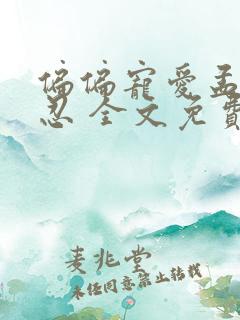 偏偏寵愛孟
忍 全文免費
麦兆堂
未经同意禁止转载